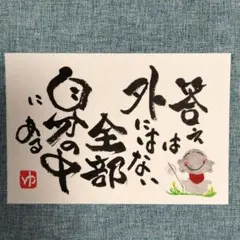 答えは
外にはない
全部
自分の中
にある
ゆ